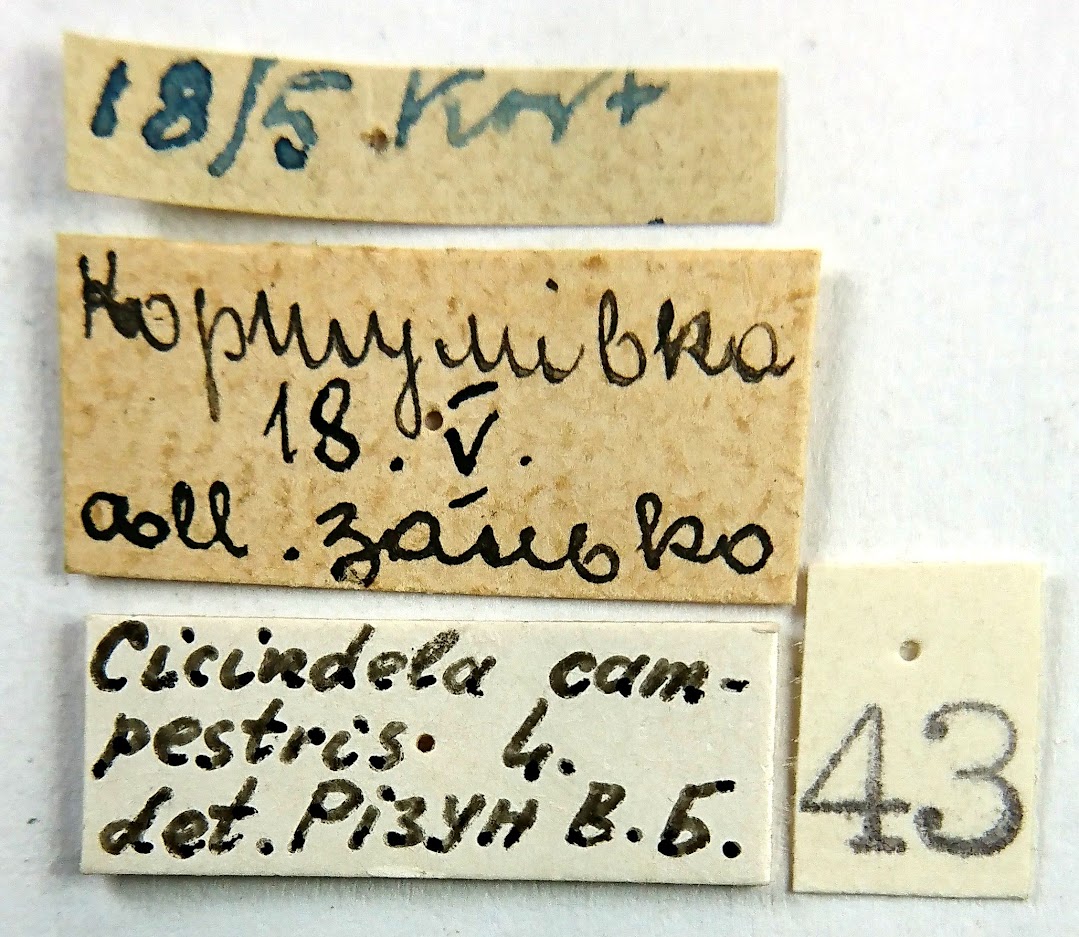 18/5 Kort
Коршумівка
18.V.
coll. Занько
Cicindela cam-
pestris L.
det. Різун В.Б.
43